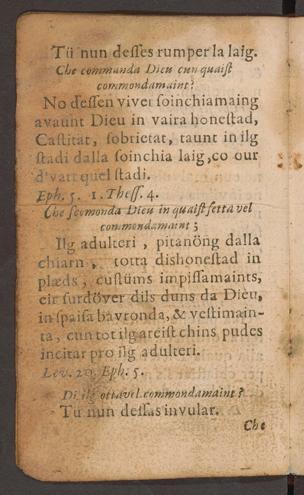 Tü nun desses rumper la laig.
Che commanda Dieu cun quaist
commondamaint?
No dessen viver soinchiamaing
avaunt Dieu in vaira honestad,
Castitat, sobrietat, taunt in ilg
stadi dalla soinchia laig, co our
d'vart quel stadi.
Eph. 5. 1. Thess. 4.
Che scomonda Dieu in quaist setta vel
commondamaint;
Ilg adulteri, pitanöng dalla
chiarn, totta dishonestad in
plæds, custüms impissamaints,
eir surdöver dils duns da Dieu,
in spaisa bavronda, & vestimain-
ta, cun tot ilg areist chins pudes
incitar pro ilg adulteri.
Lev. 20. Eph. 5.
Di ilg ottavel commondamaint?
Tü nun dessas invular.
Che